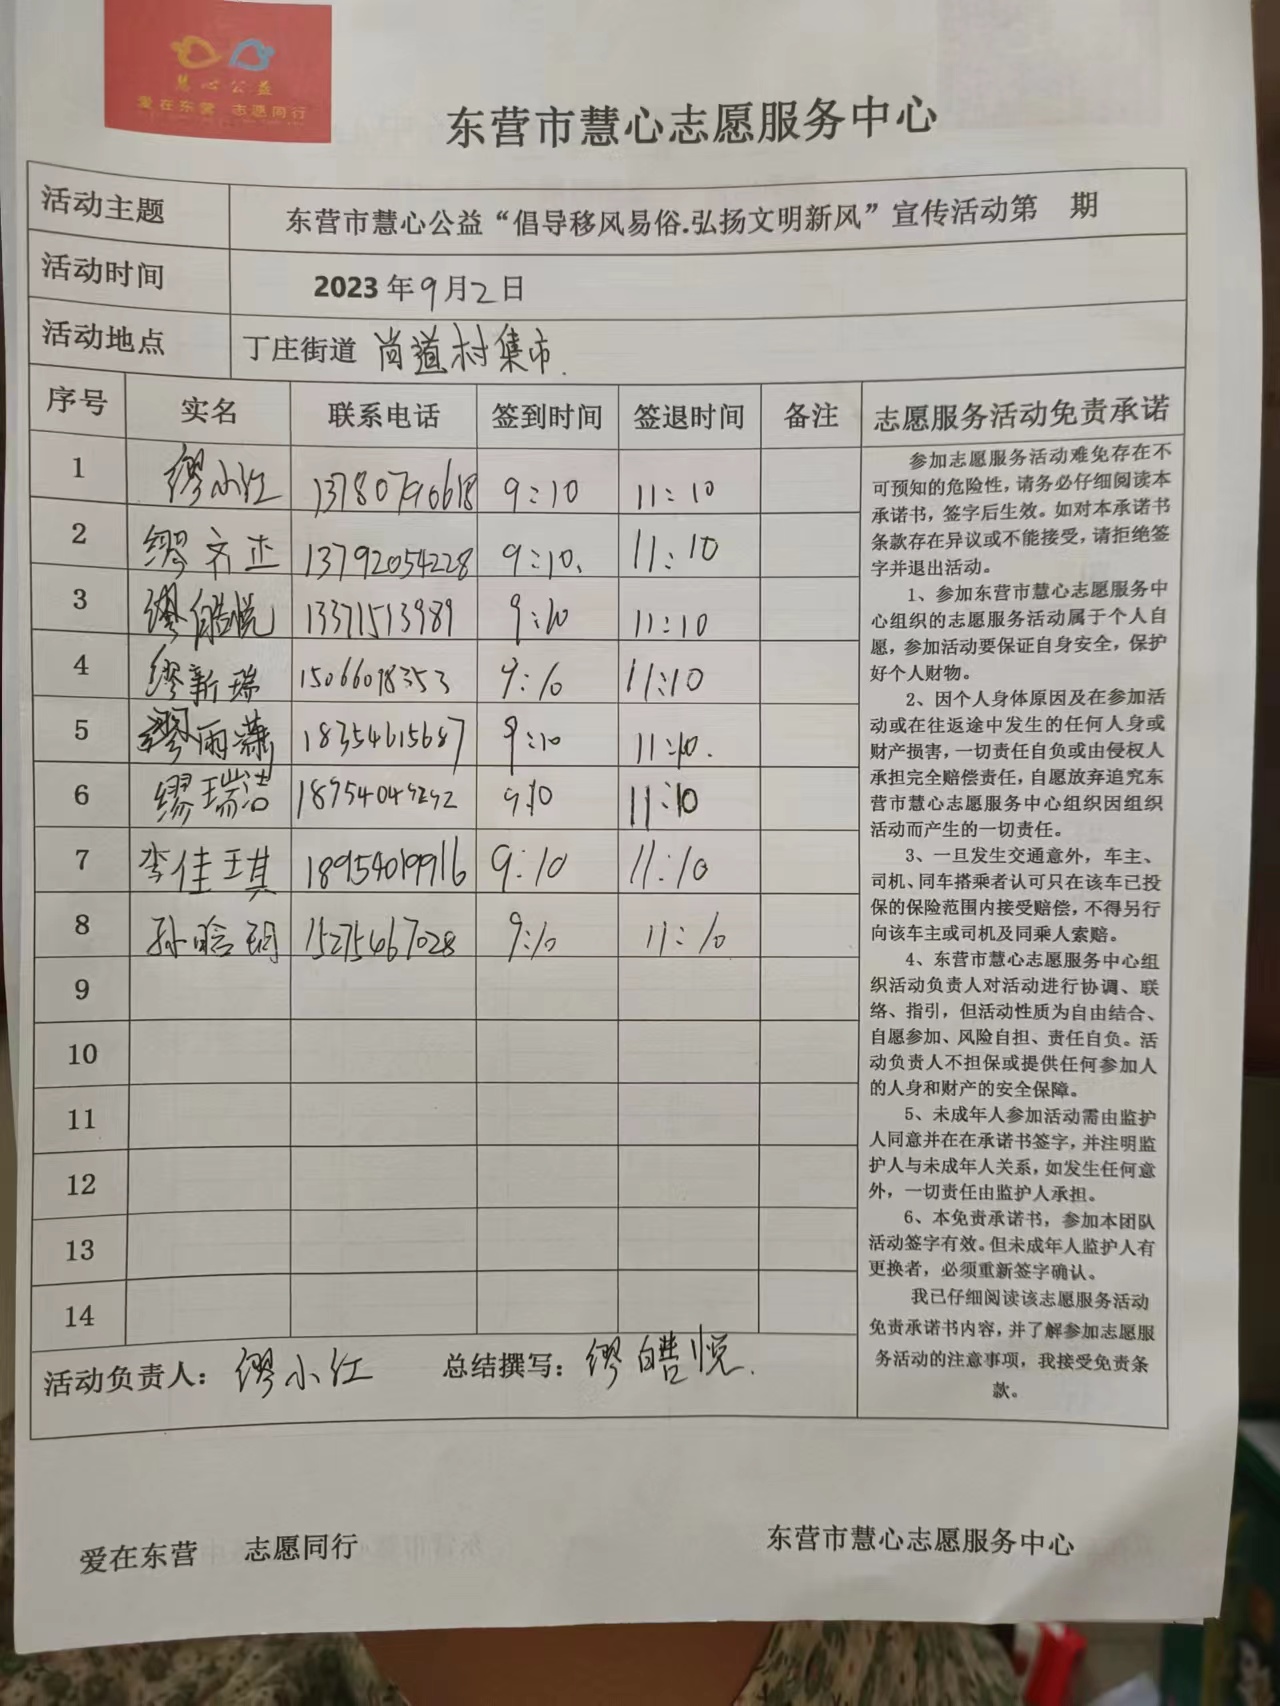 慧心公益
爱在东营 志愿同行
东营市慧心志愿服务中心
活动主题 东营市慧心公益“倡导移风易俗.弘扬文明新风”宣传活动第 期
活动时间 2023年9月2日
活动地点 丁庄街道 尚道村集市.
序号 实名 联系电话 签到时间 签退时间 备注
1 缪小红 13780796618 9:10 11:10
2 缪齐杰 13792054228 9:10. 11:10
3 缪皓悦 13371513989 9:10 11:10
4 缪新瑞 15066018353 9:10 11:10
5 缪雨潇 18354615687 9:10 11:10.
6 缪瑞洁 9:10 11:10
7 李佳琪 18954019916 9:10 11:10
8 孙晗玥 15275467028 9:10 11:10
9
10
11
12
13
14
活动负责人：缪小红 总结撰写：缪皓悦.
志愿服务活动免责承诺
参加志愿服务活动难免存在不
可预知的危险性，请务必仔细阅读本
承诺书，签字后生效。如对本承诺书
条款存在异议或不能接受，请拒绝签
字并退出活动。
1、参加东营市慧心志愿服务中
心组织的志愿服务活动属于个人自
愿，参加活动要保证自身安全，保护
好个人财物。
2、因个人身体原因及在参加活
动或在往返途中发生的任何人身或
财产损害，一切责任自负或由侵权人
承担完全赔偿责任，自愿放弃追究东
营市慧心志愿服务中心组织因组织
活动而产生的一切责任。
3、一旦发生交通意外，车主、
司机、同车搭乘者认可只在该车已投
保的保险范围内接受赔偿，不得另行
向该车主或司机及同乘人索赔。
4、东营市慧心志愿服务中心组
织活动负责人对活动进行协调、联
络、指引，但活动性质为自由结合、
自愿参加、风险自担、责任自负。活
动负责人不担保或提供任何参加人
的人身和财产的安全保障。
5、未成年人参加活动需由监护
人同意并在在承诺书签字，并注明监
护人与未成年人关系，如发生任何意
外，一切责任由监护人承担。
6、本免责承诺书，参加本团队
活动签字有效。但未成年人监护人有
更换者，必须重新签字确认。
我已仔细阅读该志愿服务活动
免责承诺书内容，并了解参加志愿服
务活动的注意事项，我接受免责条
款。
爱在东营 志愿同行 东营市慧心志愿服务中心